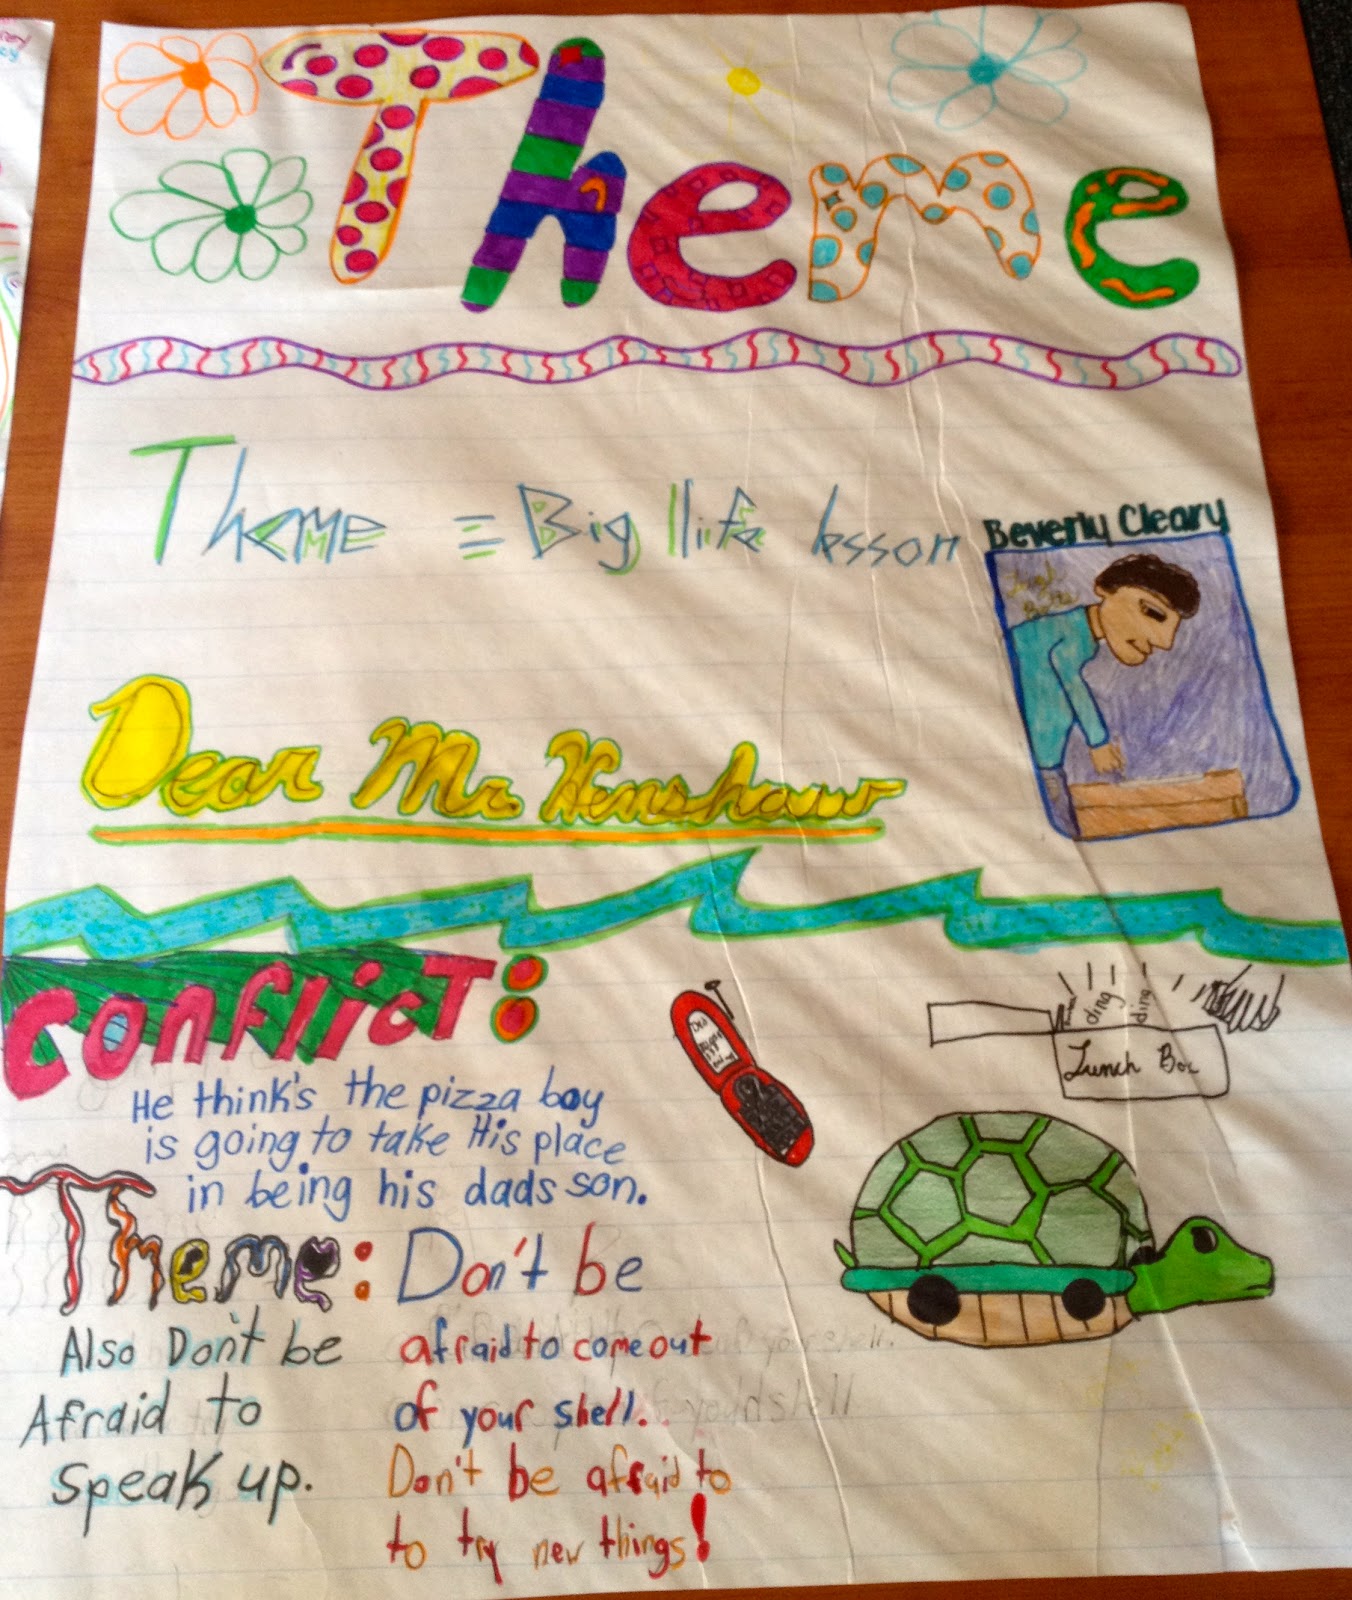 Theme
Theme = Big life lesson
Beverly Cleary
Leigh
Botts
Dear Mr. Henshaw
Conflict:
He think's the pizza boy
is going to take His place
in being his dads son.
ding
ding
Lunch Box
Theme: Don't be
afraid to come out
of your shell.
Don't be afraid to
to try new things!
Also Don't be
Afraid to
speak up.